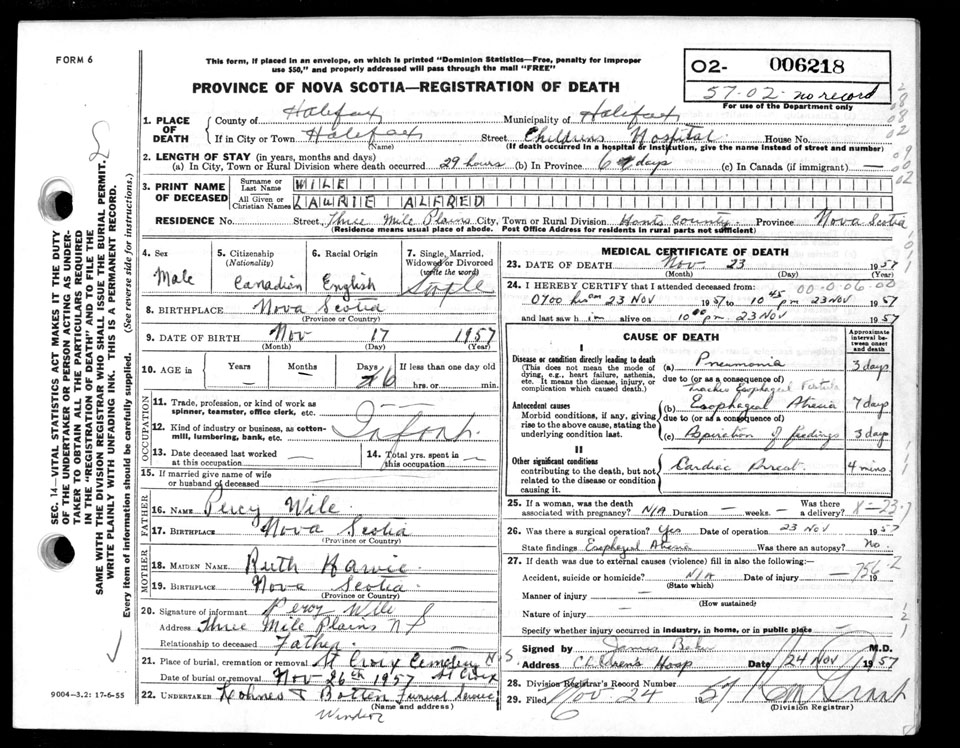 FORM 6
This form, if placed in an envelope, on which is printed "Dominion Statistics—Free, penalty for improper
use $50," and properly addressed will pass through the mail "FREE"
PROVINCE OF NOVA SCOTIA—REGISTRATION OF DEATH
02- 006218
57-02- no record
For use of the Department only
1. PLACE OF DEATH
County of Halifax Municipality of Halifax
If in City or Town Halifax Street Childrens Hospital House No.
(Name) (If death occurred in a hospital or institution, give the name instead of street and number)
2. LENGTH OF STAY (in years, months and days)
(a) In City, Town or Rural Division where death occurred 29 hours (b) In Province 6 days (c) In Canada (if immigrant) —
3. PRINT NAME OF DECEASED
Surname or Last Name WILE
All Given or Christian Names LAURIE ALFRED
RESIDENCE No. Street Three Mile Plains City, Town or Rural Division Hants County Province Nova Scotia
(Residence means usual place of abode. Post Office Address for residents in rural parts not sufficient)
4. Sex Male
5. Citizenship (Nationality) Canadian
6. Racial Origin English
7. Single, Married, Widowed or Divorced (write the word) Single
8. BIRTHPLACE Nova Scotia
(Province or Country)
9. DATE OF BIRTH Nov 17 1957
(Month) (Day) (Year)
10. AGE in Years — Months — Days 6 If less than one day old
hrs. or min.
OCCUPATION
11. Trade, profession, or kind of work as spinner, teamster, office clerk, etc. —
12. Kind of industry or business, as cotton-mill, lumbering, bank, etc. Infant
13. Date deceased last worked at this occupation —
14. Total yrs. spent in this occupation —
15. If married give name of wife or husband of deceased —
FATHER
16. NAME Percy Wile
17. BIRTHPLACE Nova Scotia
(Province or Country)
MOTHER
18. MAIDEN NAME Ruth Harvie
19. BIRTHPLACE Nova Scotia
(Province or Country)
20. Signature of informant Percy Wile
Address Three Mile Plains N S
Relationship to deceased Father
21. Place of burial, cremation or removal St Croix Cemetery N.S.
Date of burial or removal Nov 26th 1957 St Croix
22. UNDERTAKER Botten Funeral Service
(Name and address)
Windsor
9004—3.2: 17-6-55
MEDICAL CERTIFICATE OF DEATH
23. DATE OF DEATH Nov 23 1957
(Month) (Day) (Year)
24. I HEREBY CERTIFY that I attended deceased from: 00-0-06-00
0700 hrs am 23 NOV 1957 to 10 45 pm 23 NOV 1957
and last saw him alive on 10 00 pm 23 NOV 1957
CAUSE OF DEATH
Approximate interval between onset and death
I
Disease or condition directly leading to death
(This does not mean the mode of dying, e.g., heart failure, asthenia, etc. It means the disease, injury, or complication which caused death.)
(a) Pneumonia 3 days
due to (or as a consequence of)
Tracheo Esophageal Fistula
Antecedent causes
Morbid conditions, if any, giving rise to the above cause, stating the underlying condition last.
(b) Esophageal Atresia 7 days
due to (or as a consequence of)
(c) Aspiration of feedings 3 days
II
Other significant conditions
contributing to the death, but not related to the disease or condition causing it.
Cardiac Arrest 4 mins.
25. If a woman, was the death associated with pregnancy? N/A Duration — weeks. Was there a delivery?
26. Was there a surgical operation? Yes Date of operation 23 NOV 1957
State findings Esophageal Atresia Was there an autopsy? No
27. If death was due to external causes (violence) fill in also the following:—
Accident, suicide or homicide? N/A Date of injury — 19
(State which)
756.2
Manner of injury —
(How sustained)
Nature of injury —
Specify whether injury occurred in industry, in home, or in public place —
Signed by James M.D.
Address Childrens Hosp Date 24 Nov 1957
28. Division Registrar's Record Number
29. Filed Nov 24 1957
(Division Registrar)
SEC. 14—VITAL STATISTICS ACT MAKES IT THE DUTY
OF THE UNDERTAKER OR PERSON ACTING AS UNDER-
TAKER TO OBTAIN ALL THE PARTICULARS REQUIRED
IN THE "REGISTRATION OF DEATH" AND TO FILE THE
SAME WITH THE DIVISION REGISTRAR WHO SHALL ISSUE THE BURIAL PERMIT.
WRITE PLAINLY WITH UNFADING INK. THIS IS A PERMANENT RECORD.
Every item of information should be carefully supplied. (See reverse side for instructions.)